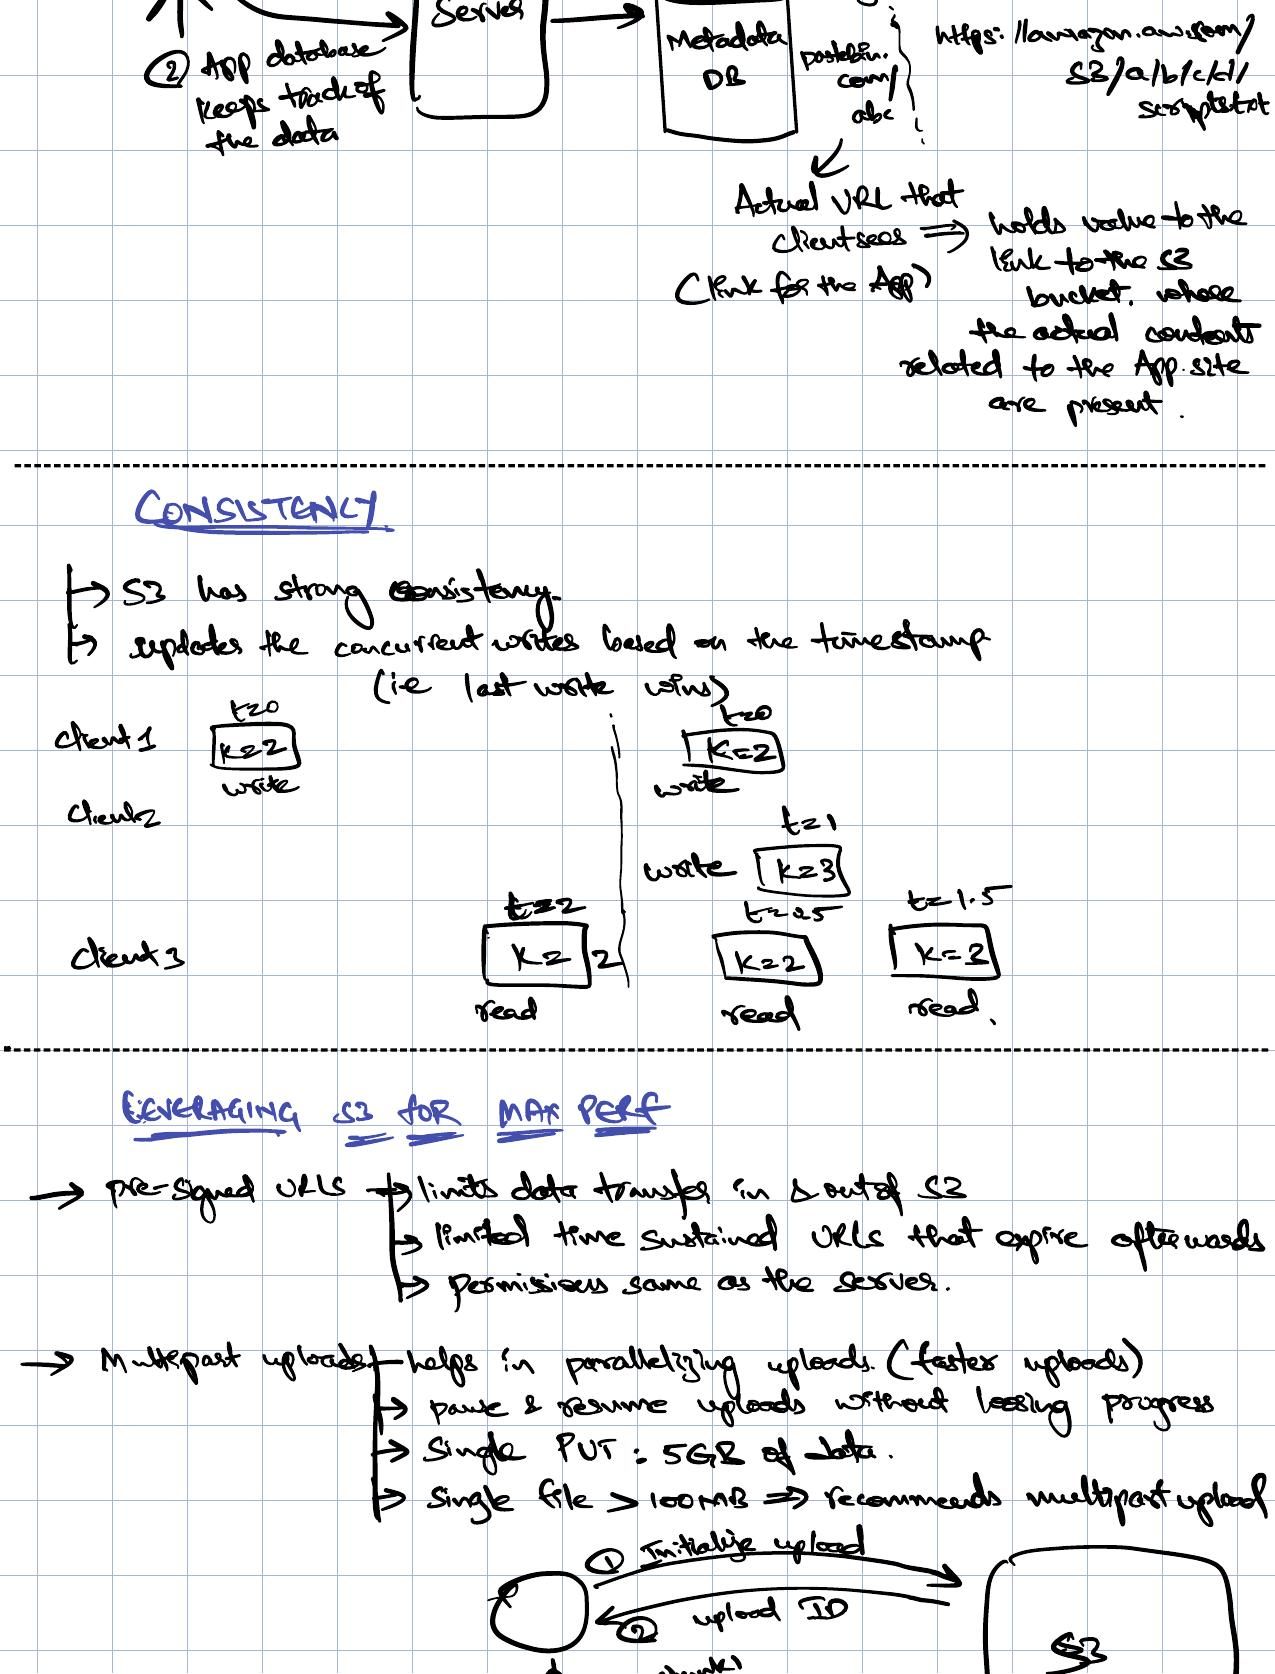 Server
② App database
keeps track of
the data
Metadata
DB
pastebin.
com/
abc
https://amazon.aws.com/
S3/a/b/c/d/
Actual URL that
client sees ⇒
(link for the App)
holds value to the
link to the S3
bucket, whose
the actual contents
related to the App.site
are present.
CONSISTENCY
→ S3 has strong consistency.
→ updates the concurrent writes based on the timestamp
(i.e last write wins)
client 1
t=0
k=2
write
t=0
K=2
write
client2
t=1
write
k=3
client 3
t=2
K=2
read
k=2
read
t=1.5
read.
LEVERAGING S3 FOR MAX PERF
→ pre-signed URLs → limits data transfer in & out of S3
→ limited time sustained URLs that expire afterwards
→ permissions same as the server.
→ Multipart uploads helps in parallelizing uploads. (faster uploads)
→ pause & resume uploads without loosing progress
→ Single PUT : 5GB of data.
→ Single file > 100MB ⇒ recommends multipart upload
① Initialize upload
② upload ID
S3
chunk1